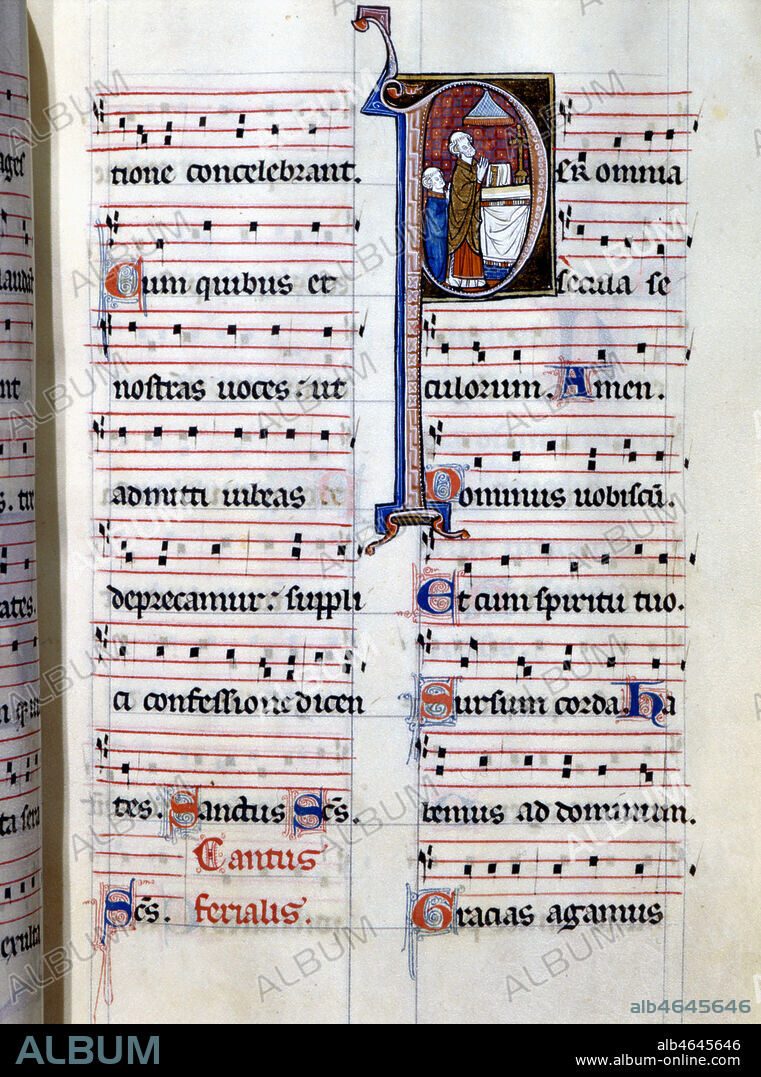 tione concelebrant.
Cum quibus et
nostras uoces : ut
admitti iubeas
deprecamur : suppli
ci confessione dicen
tes. Sanctus Scs.
Cantus
Scs. ferialis.
ER omnia
secula se
culorum. Amen.
Dominus uobiscū.
Et cum spiritu tuo.
Sursum corda. Ha
bemus ad dominum.
Gracias agamus
ages
laudāt
nt
s. tre
ates.
ta sera
exulta
alb4645646
ALBUM
alb4645646
www.album-online.com